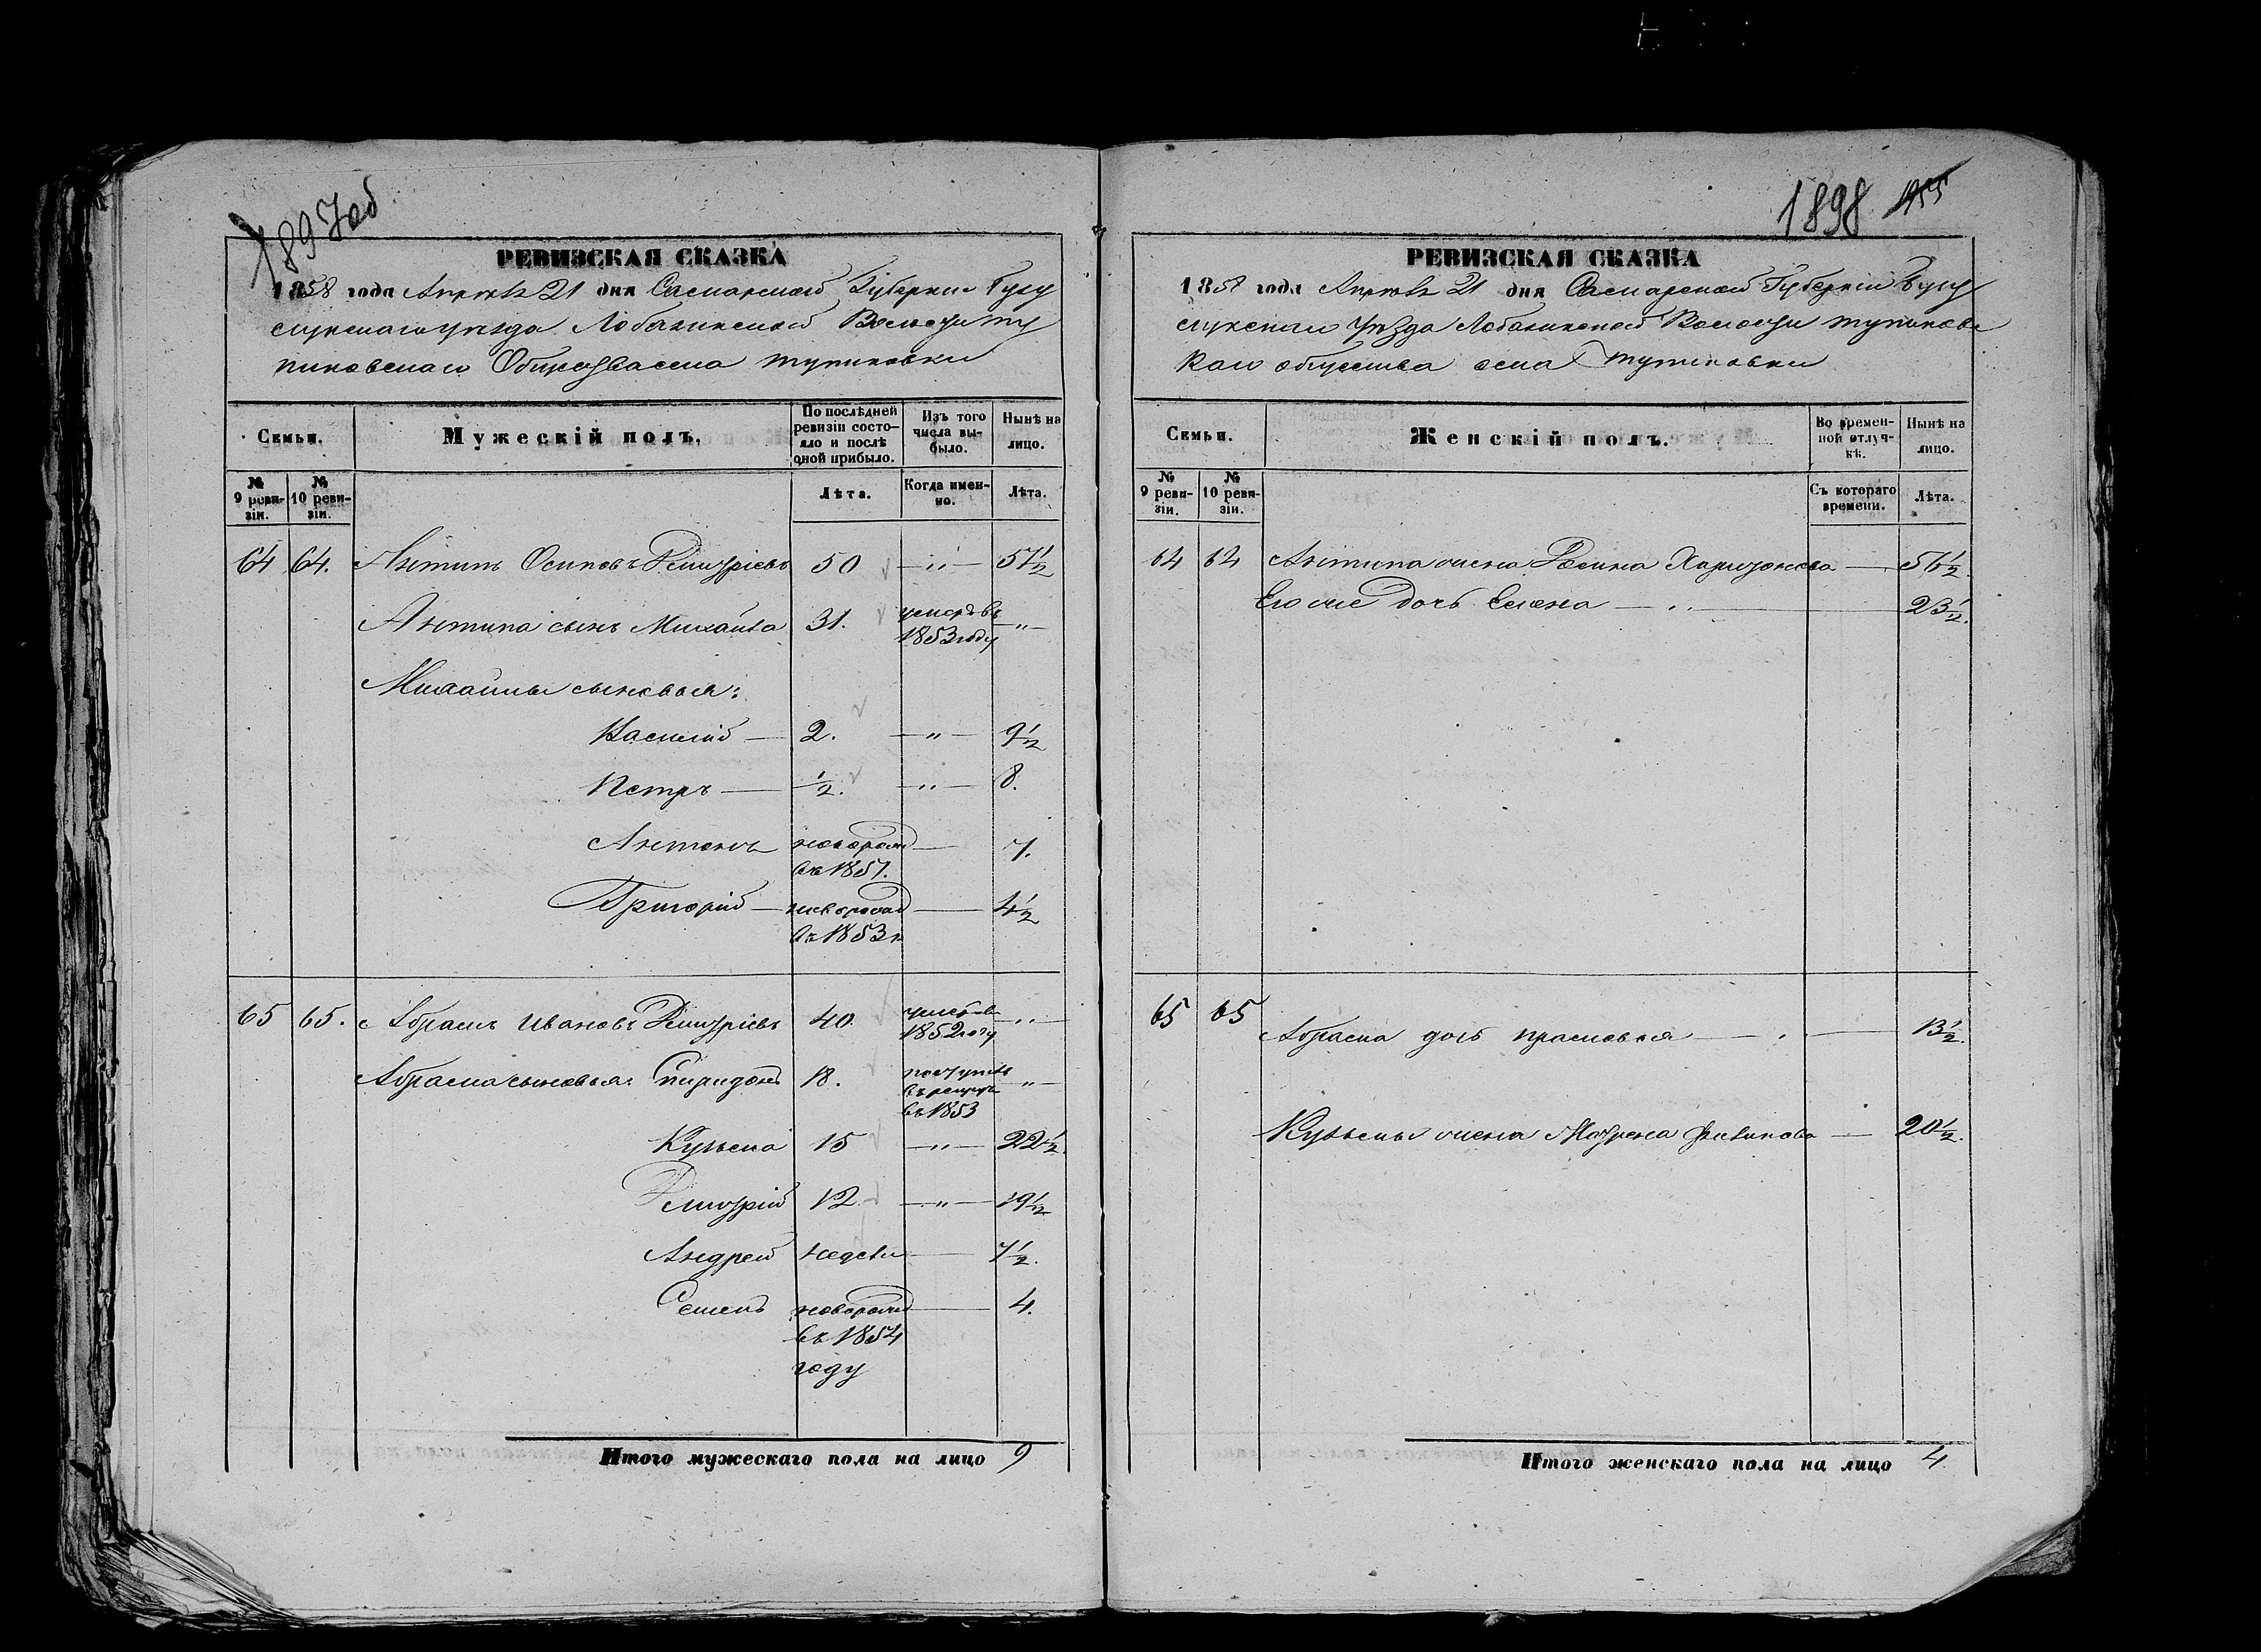 1897об
РЕВИЗСКАЯ СКАЗКА
1858 года Апрѣля 21 дня Самарской Губерніи Бугу
сунскаго уѣзда Лобазинской Волости ту
пиковскаго Общества села тупиковки
Семьи.
Мужескій полъ.
По послѣдней
ревизіи состо-
яло и послѣ
оной прибыло.
Изъ того
числа вы-
было.
Нынѣ на
лицо.
№
9 реви-
зіи.
№
10 реви-
зіи.
Лѣта.
Когда имен-
но.
Лѣта.
64 64. Антипъ Осиповъ Дмитріевъ 50 — " — 57½
Антипа сынъ Михайла 31. умеръ въ
1853 году — " —
Михайлы сыновья:
Василій — 2. — " — 9½
Петръ — ½. — " — 8.
Антонъ новорож — 7.
въ 1851.
Григорій — новорож — 4½
въ 1853 г
65 65. Абрамъ Ивановъ Дмитріевъ 40. умеръ в
1852 году — " —
Абрама сыновья: Спиридонъ 18. поступ.
в рекруты
въ 1853 — " —
Кузьма 15 — " — 22½.
Дмитрій 12 — " — 19½
Андрей недели — 7½.
Семенъ новорож — 4.
въ 1854
году
Итого мужескаго пола на лицо 9
1898 1955
РЕВИЗСКАЯ СКАЗКА
1858 года Апрѣля 21 дня Самарской Губерніи Бугу
сунскаго Уѣзда Лобазинской Волости тупиковс
каго общества села тупиковки
Семьи.
Женскій полъ.
Во времен-
ной отлуч-
кѣ.
Нынѣ на
лицо.
№
9 реви-
зіи.
№
10 реви-
зіи.
Съ котораго
времени.
Лѣта.
64 64 Антипа жена Харитонова — 56½.
Его же дочь Елена — " — 23½.
65 65
Абрама дочь прасковья — " — 13½.
Кузьмы жена Матрена — 20½.
Итого женскаго пола на лицо 4.